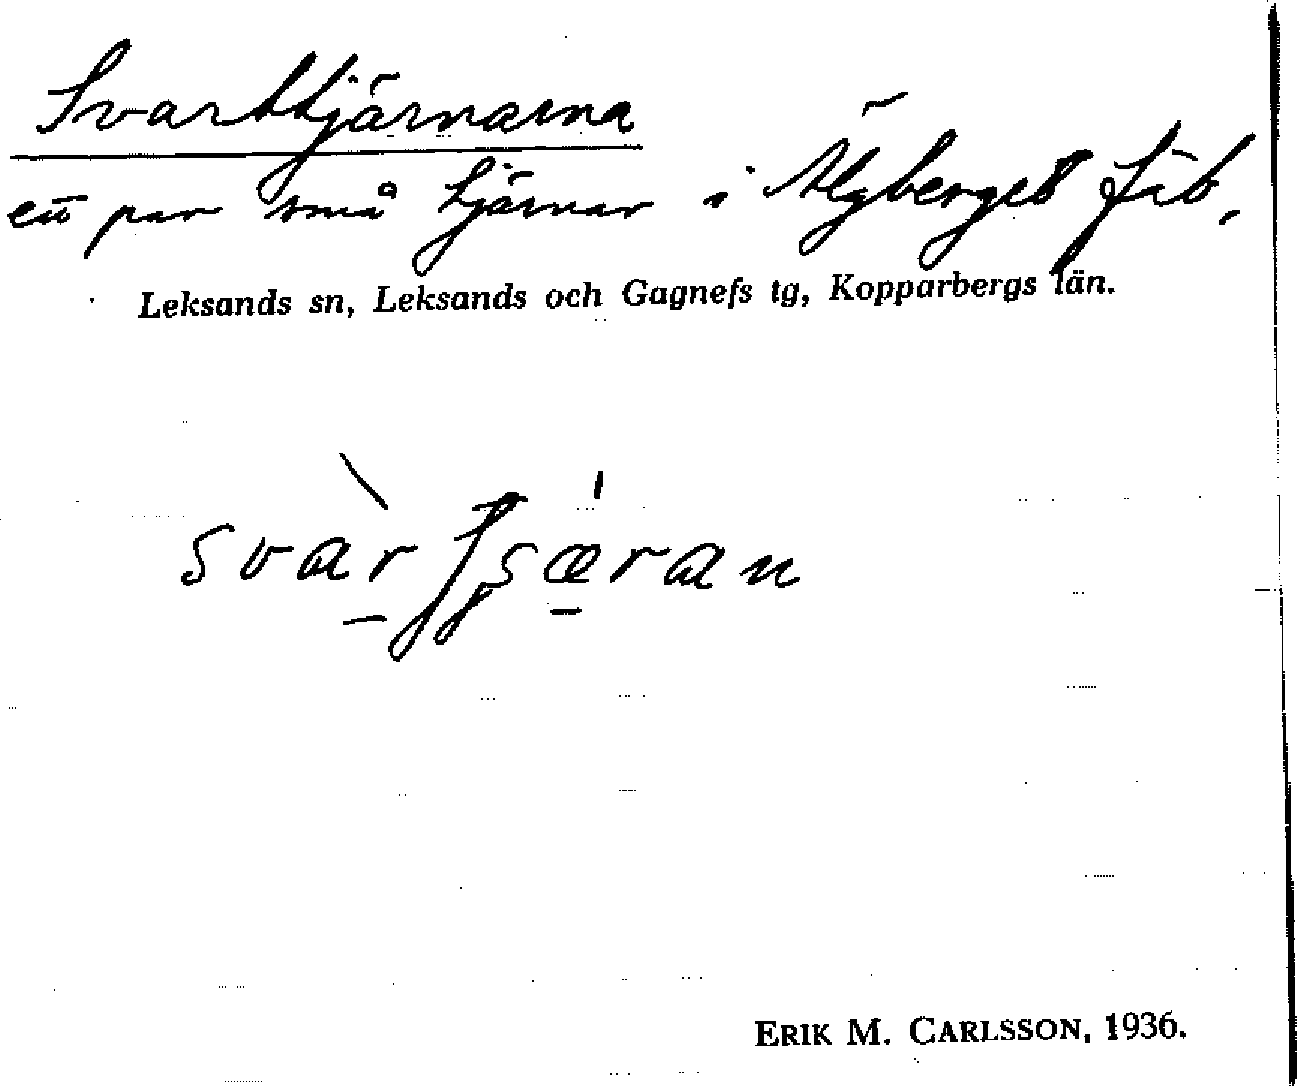 Svarttjärnarna
ett par små tjärnar i Älgberget fäb.
Leksands sn, Leksands och Gagnefs tg, Kopparbergs län.
ERIK M. CARLSSON, 1936.